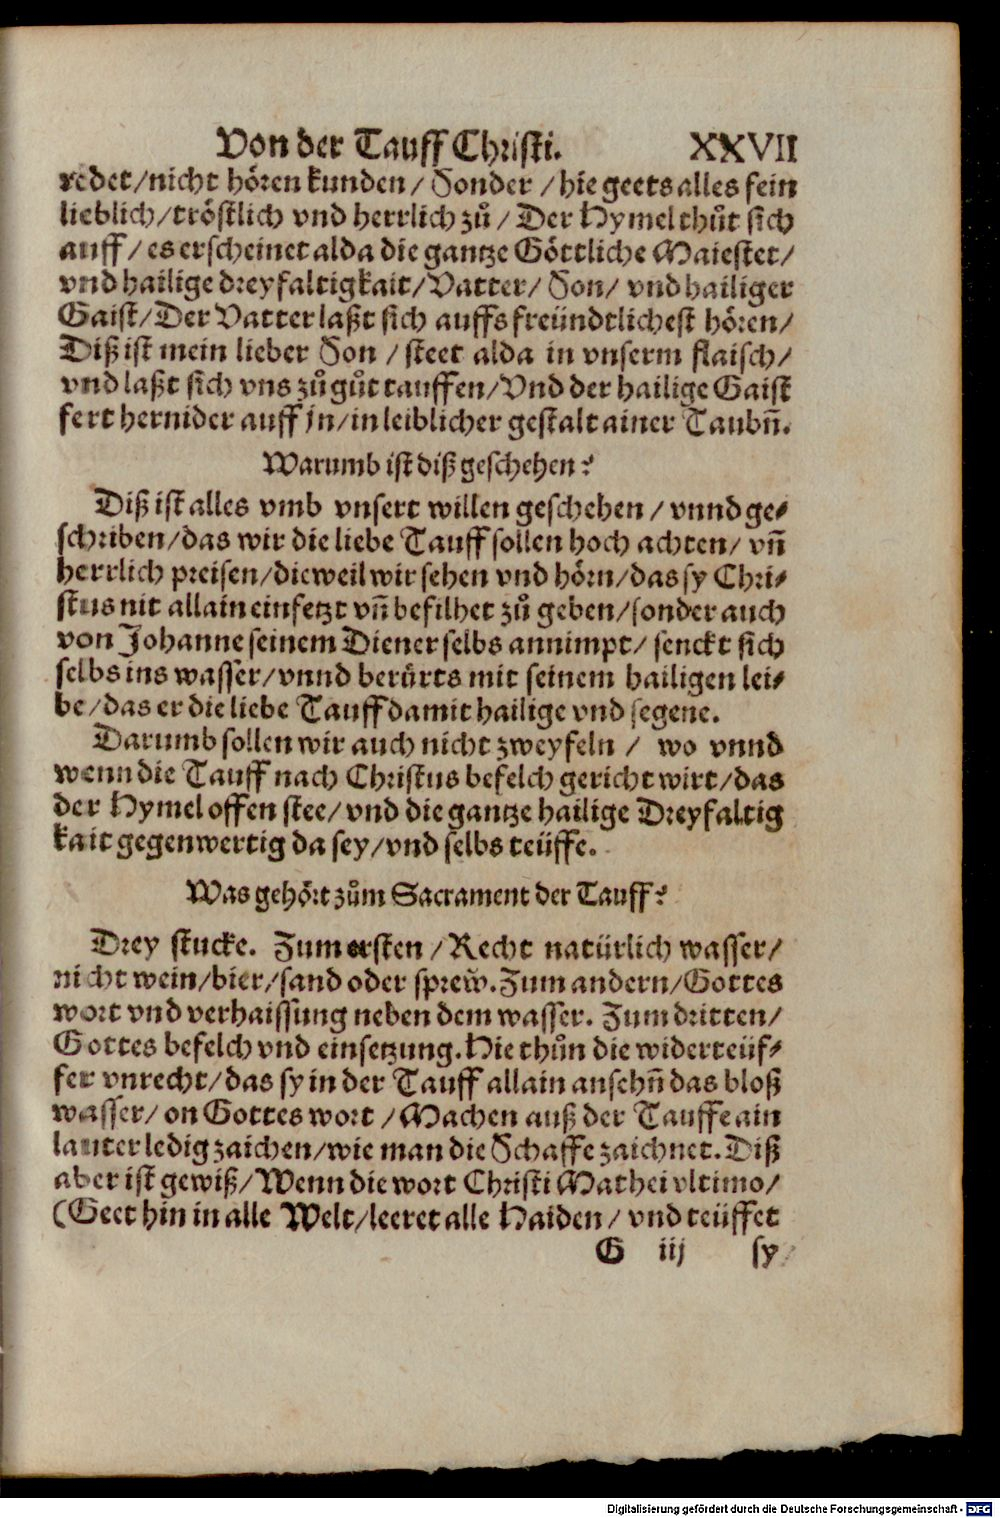 Von der Tauff Christi. XXVII
redet/nicht hören kunden/ Sonder /hie geets alles fein
lieblich/tröstlich vnd herrlich zů/ Der Hymel thůt sich
auff/ es erscheinet alda die gantze Göttliche Maiestet/
vnd hailige dreyfaltigkait/Vatter/ Son/ vnd hailiger
Gaist/Der Vatter laßt sich auffs freündtlichest hören/
Diß ist mein lieber Son /steet alda in vnserm flaisch/
vnd laßt sich vns zů gůt tauffen/Vnd der hailige Gaist
fert hernider auff jn/in leiblicher gestalt ainer Taubn̄.
Warumb ist diß geschehen?
Diß ist alles vmb vnsert willen geschehen/vnnd ge⸗
schriben/das wir die liebe Tauff sollen hoch achten/ vn̄
herrlich preisen/dieweil wir sehen vnd hörn/das sy Chri⸗
stus nit allain einsetzt vn̄ befilhet zů geben/sonder auch
von Johanne seinem Diener selbs annimpt/ senckt sich
selbs ins wasser/vnnd berürts mit seinem hailigen lei⸗
be/das er die liebe Tauff damit hailige vnd segene.
Darumb sollen wir auch nicht zweyfeln / wo vnnd
wenn die Tauff nach Christus befelch gericht wirt/das
der Hymel offen stee/vnd die gantze hailige Dreyfaltig
kait gegenwertig da sey/vnd selbs teüffe.
Was gehört zům Sacrament der Tauff?
Drey stucke. Zum ersten /Recht natürlich wasser/
nicht wein/bier/sand oder sprew̃. Zum andern/Gottes
wort vnd verhaissung neben dem wasser. Zum dritten/
Gottes befelch vnd einsetzung. Hie thůn die widerteüf⸗
fer vnrecht/das sy in der Tauff allain ansehn̄ das bloß
wasser/on Gottes wort /Machen auß der Tauffe ain
lauter ledig zaichen/wie man die Schaffe zaichnet. Diß
aber ist gewiß/Wenn die wort Christi Mathei vltimo/
(Geet hin in alle Welt/leeret alle Haiden/ vnd teüffet
G iij sy
Digitalisierung gefördert durch die Deutsche Forschungsgemeinschaft - DFG